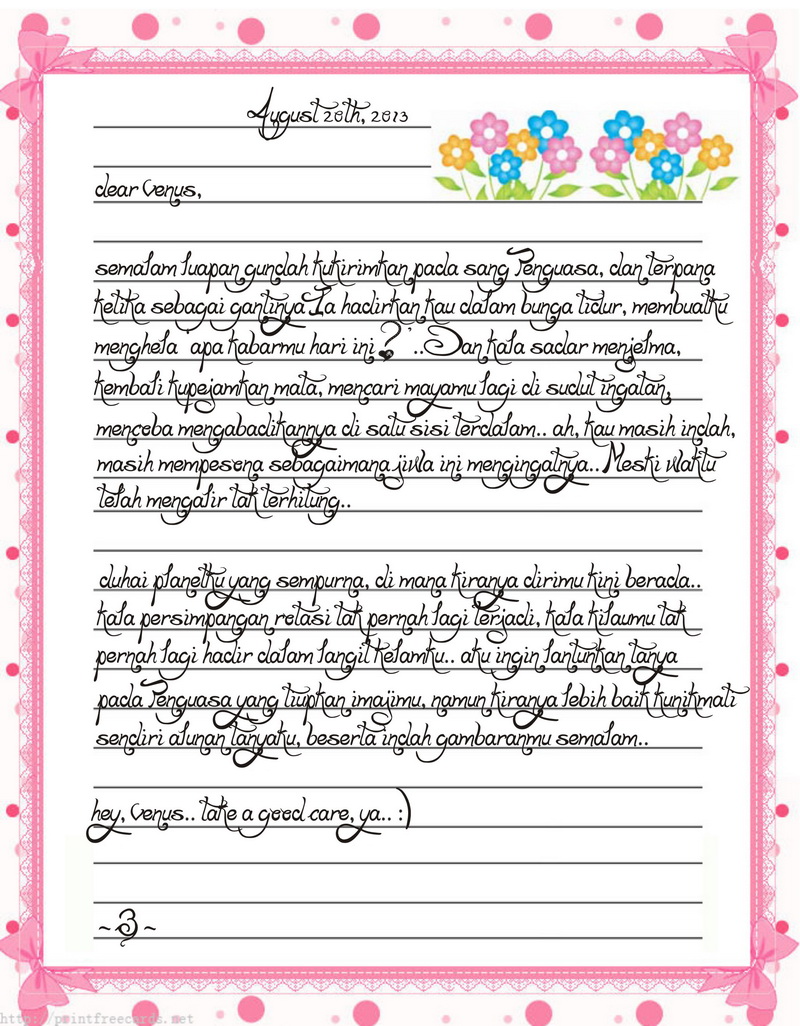 August 20th, 2013
dear Venus,
semalam luapan gundah kukirimkan pada sang Penguasa, dan terpana
ketika sebagai gantinya Ia hadirkan kau dalam bunga tidur, membuatku
menghela 'apa kabarmu hari ini?'.. Dan kala sadar menjelma,
kembali kupejamkan mata, mencari mayamu lagi di sudut ingatan,
mencoba mengabadikannya di satu sisi terdalam.. ah, kau masih indah,
masih mempesona sebagaimana jiwa ini mengingatnya.. Meski waktu
telah mengalir tak terhitung..
duhai planetku yang sempurna, di mana kiranya dirimu kini berada..
kala persimpangan rotasi tak pernah lagi terjadi, kala kilaumu tak
pernah lagi hadir dalam langit kelamku.. aku ingin lantunkan tanya
pada Penguasa yang tiupkan imajimu, namun kiranya lebih baik kunikmati
sendiri alunan tanyaku, beserta indah gambaranmu semalam..
hey, Venus.. take a good care, ya.. :)
~3~
http://printfreecards.net